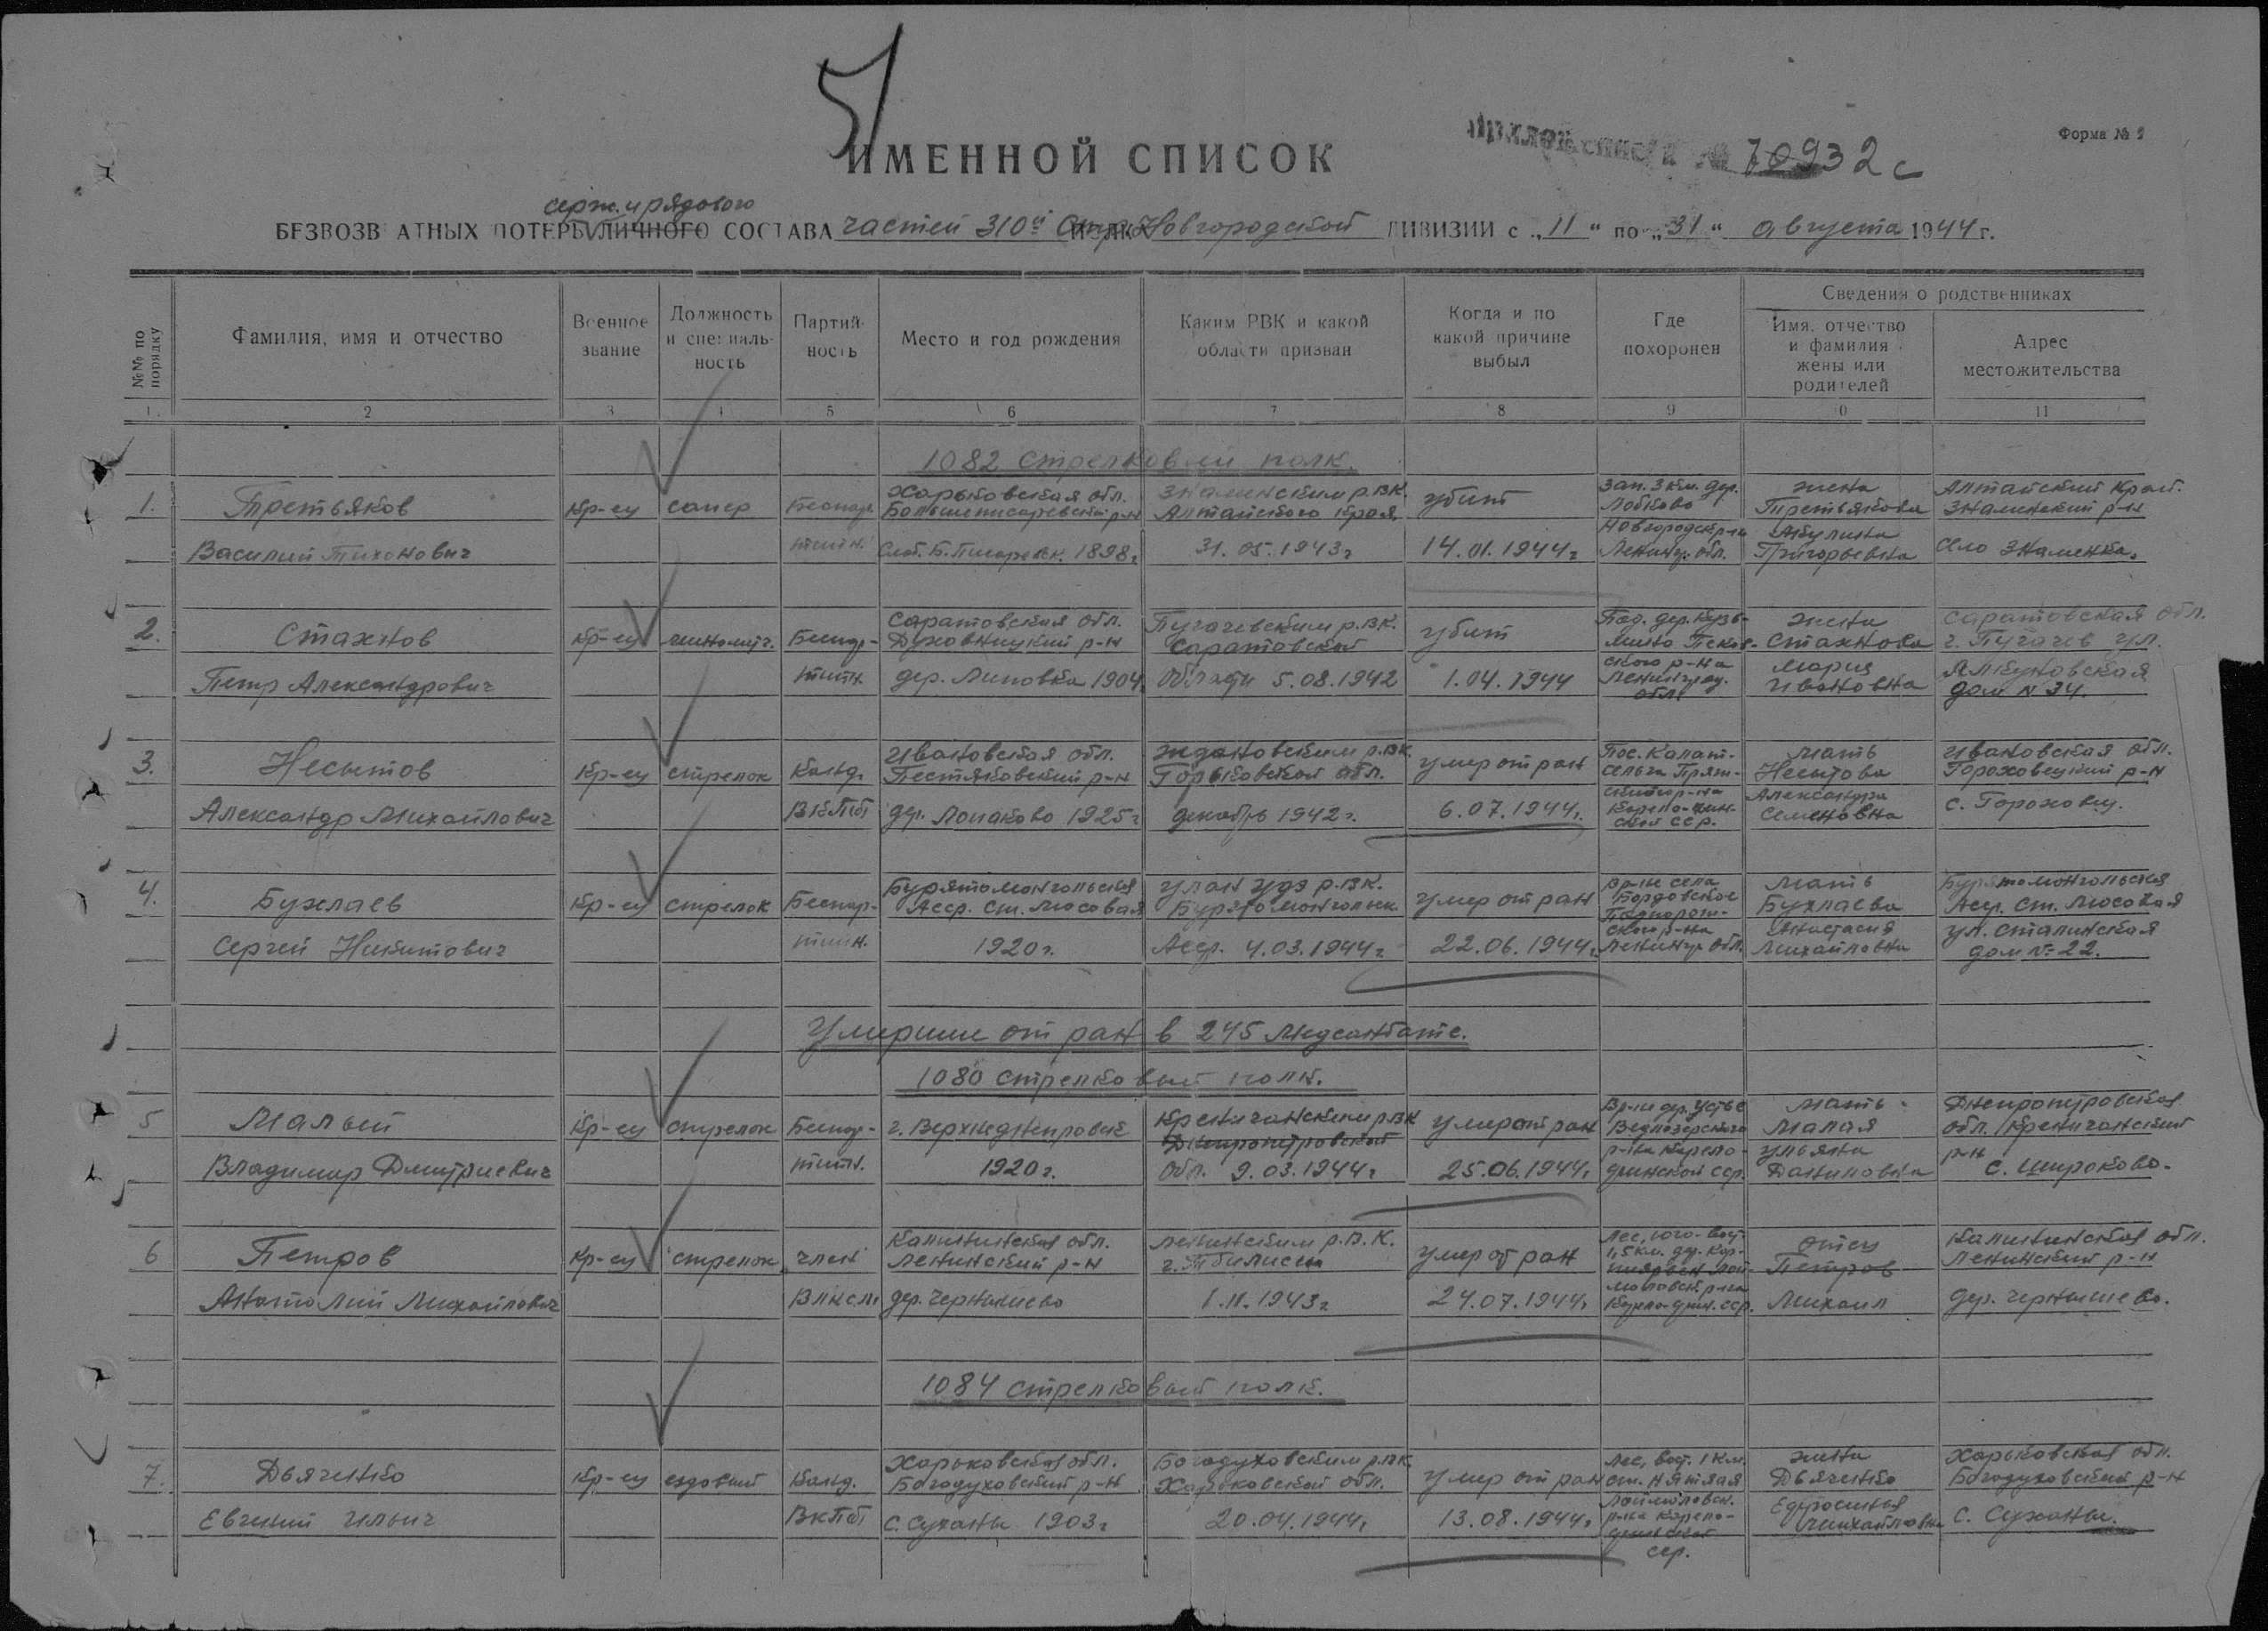 51
Форма № 2
№ 70932с
ИМЕННОЙ СПИСОК
серж. и рядового
БЕЗВОЗВ АТНЫХ ПОТЕРЬ ЛИЧНОГО СОСТАВА частей 310й Стр. Новгородской ДИВИЗИИ с „11“ по „31“ августа 1944 г.
№№ по порядку
Фамилия, имя и отчество
Военное звание
Должность и специальность
Партийность
Место и год рождения
Каким РВК и какой области призван
Когда и по какой причине выбыл
Где похоронен
Сведения о родственниках
Имя, отчество и фамилия жены или родителей
Адрес местожительства
1 2 3 4 5 6 7 8 9 10 11
1082 стрелковый полк.
1. Третьяков кр-ец сапер беспар- Харьковская обл. Большеписаревский р-н Знаменским р.в.к. Алтайского края убит Зап. 3 км. дер. Лобково жена Третьякова Алтайский край. Знаменский р-н
Василий Тихонович тийн. Слоб. Б. Писаревск. 1898г 31.05.1943г 14.01.1944г Новгородск р-н Ленингр. обл. Акулина Григорьевна село Знаменка.
2. Стахнов кр-ец Беспар- Саратовская обл. Духовницкий р-н Пугачевским р.в.к. Саратовской убит жена Стахнова Саратовская обл. г. Пугачев ул.
Петр Александрович тийн. дер. Липовка 1904 области 5.08.1942 1.04.1944 ского р-на Ленинград. обл. Мария Ивановна дом № 34.
3. Несытов кр-ец стрелок Канд. Ивановская обл. Пестяковский р-н Ждановским р.в.к. Горьковской обл. умер от ран мать Несытова Ивановская обл. Гороховецкий р-н
Александр Михайлович ВКПб дер. Лопаково 1925г декабрь 1942г. 6.07.1944г. Карело-фин- ской ССР. Александра Семеновна с. Гороховец.
4. Бухлаев кр-ец стрелок Беспар- Бурятомонгольская Асср. ст. Мысовая Улан Удэ р.в.к. Бурятомонгольск. умер от ран мать Бухлаева Бурятомонгольская Асср. ст. Мысовая
Сергей Никитович тийн. 1920г. Асср. 4.03.1944г 22.06.1944г. ского р-на Ленингр обл. Анастасия Михайловна ул. Сталинская дом № 22.
Умершие от ран в 245 медсанбате.
1080 стрелковый полк.
5 Малый кр-ец стрелок Беспар- г. Верхнеднепровск Криничанским р.в.к Днепропетровской умер от ран В р-не дер. Устье Ведлозерского мать Малая Днепропетровская обл. Криничанский р-н
Владимир Дмитриевич тийн. 1920г. обл. 9.03.1944г 25.06.1944г. р-на Карело- финской сср. Ульяна Даниловна с. Широково.
6 Петров кр-ец стрелок член Калининская обл. Ленинский р-н Ленинским р.в.к. г. Тбилиси умер от ран Лес, юго-вост. 1,5 км. дер. отец Петров Калининская обл. Ленинский р-н
Анатолий Михайлович ВЛКСМ дер. Чернышево 1.11.1943г 24.07.1944г. Карело-фин. сср. Михаил дер. Чернышево.
1084 стрелковый полк.
7. Дьяченко кр-ец ездовый Канд. Харьковская обл. Богодуховский р-н Богодуховским р.в.к Харьковской обл. умер от ран Лес, вост. 1 км. жена Дьяченко Харьковская обл. Богодуховский р-н
Евгений Ильич ВКПб с. Суханы 1903г 20.04.1944г. 13.08.1944г. Лоймоловск. р-на Карело- финской сср. Ефросинья Михайловна с. Суханы.